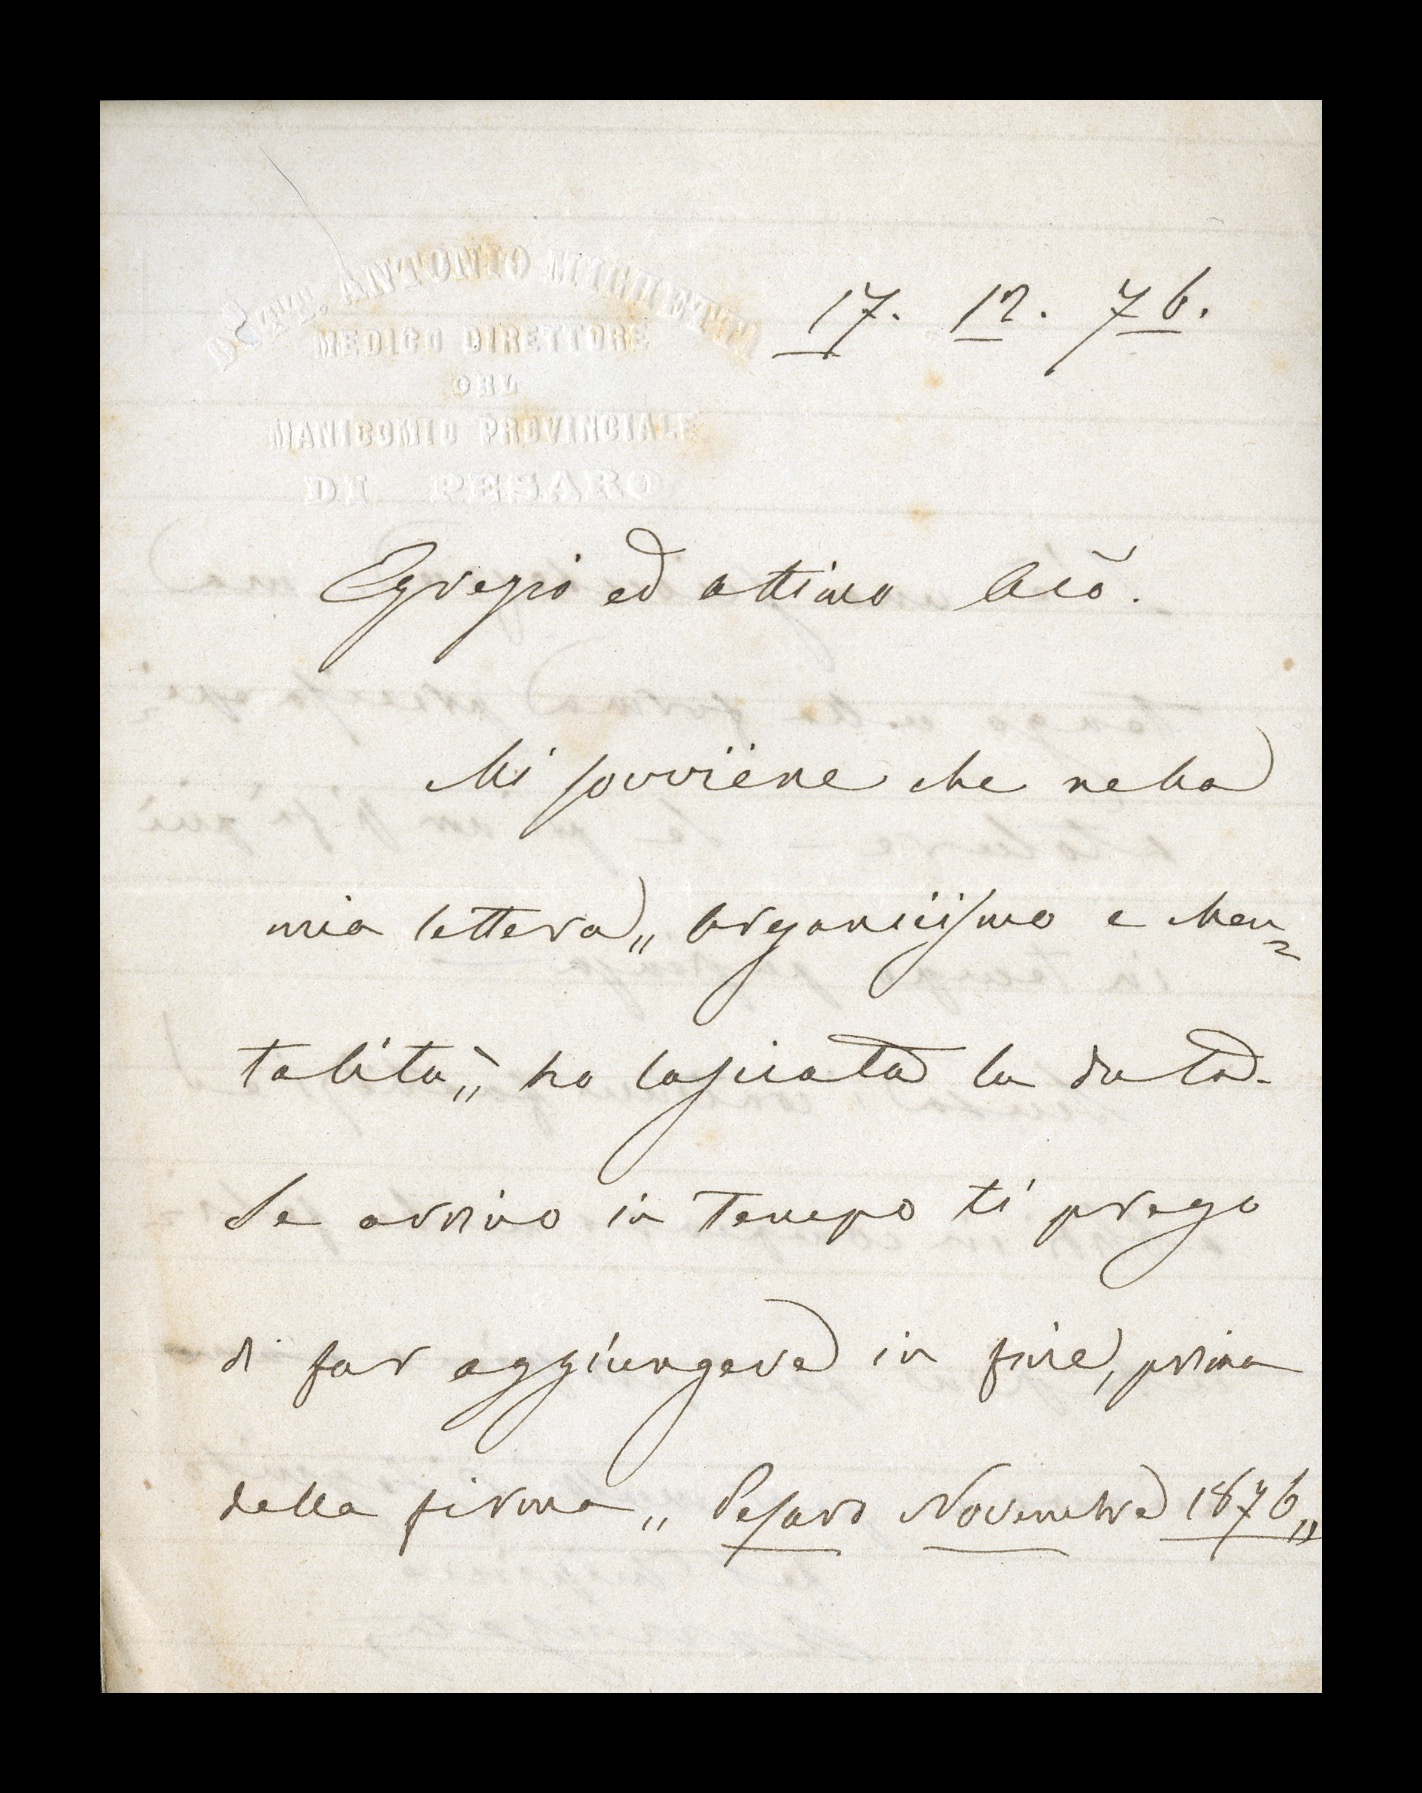 DOTT. ANTONIO MICHETTI
MEDICO DIRETTORE
DEL
MANICOMIO PROVINCIALE
DI PESARO
17. 12. 76.
Egregio ed ottimo Aco.
Mi sovviene che nella
mia lettera „ Organicismo e Men=
talità „ ho lasciata la data.
Se arrivo in tempo ti prego
di far aggiungere in fine, prima
della firma „ Pesaro Novembre 1876 „